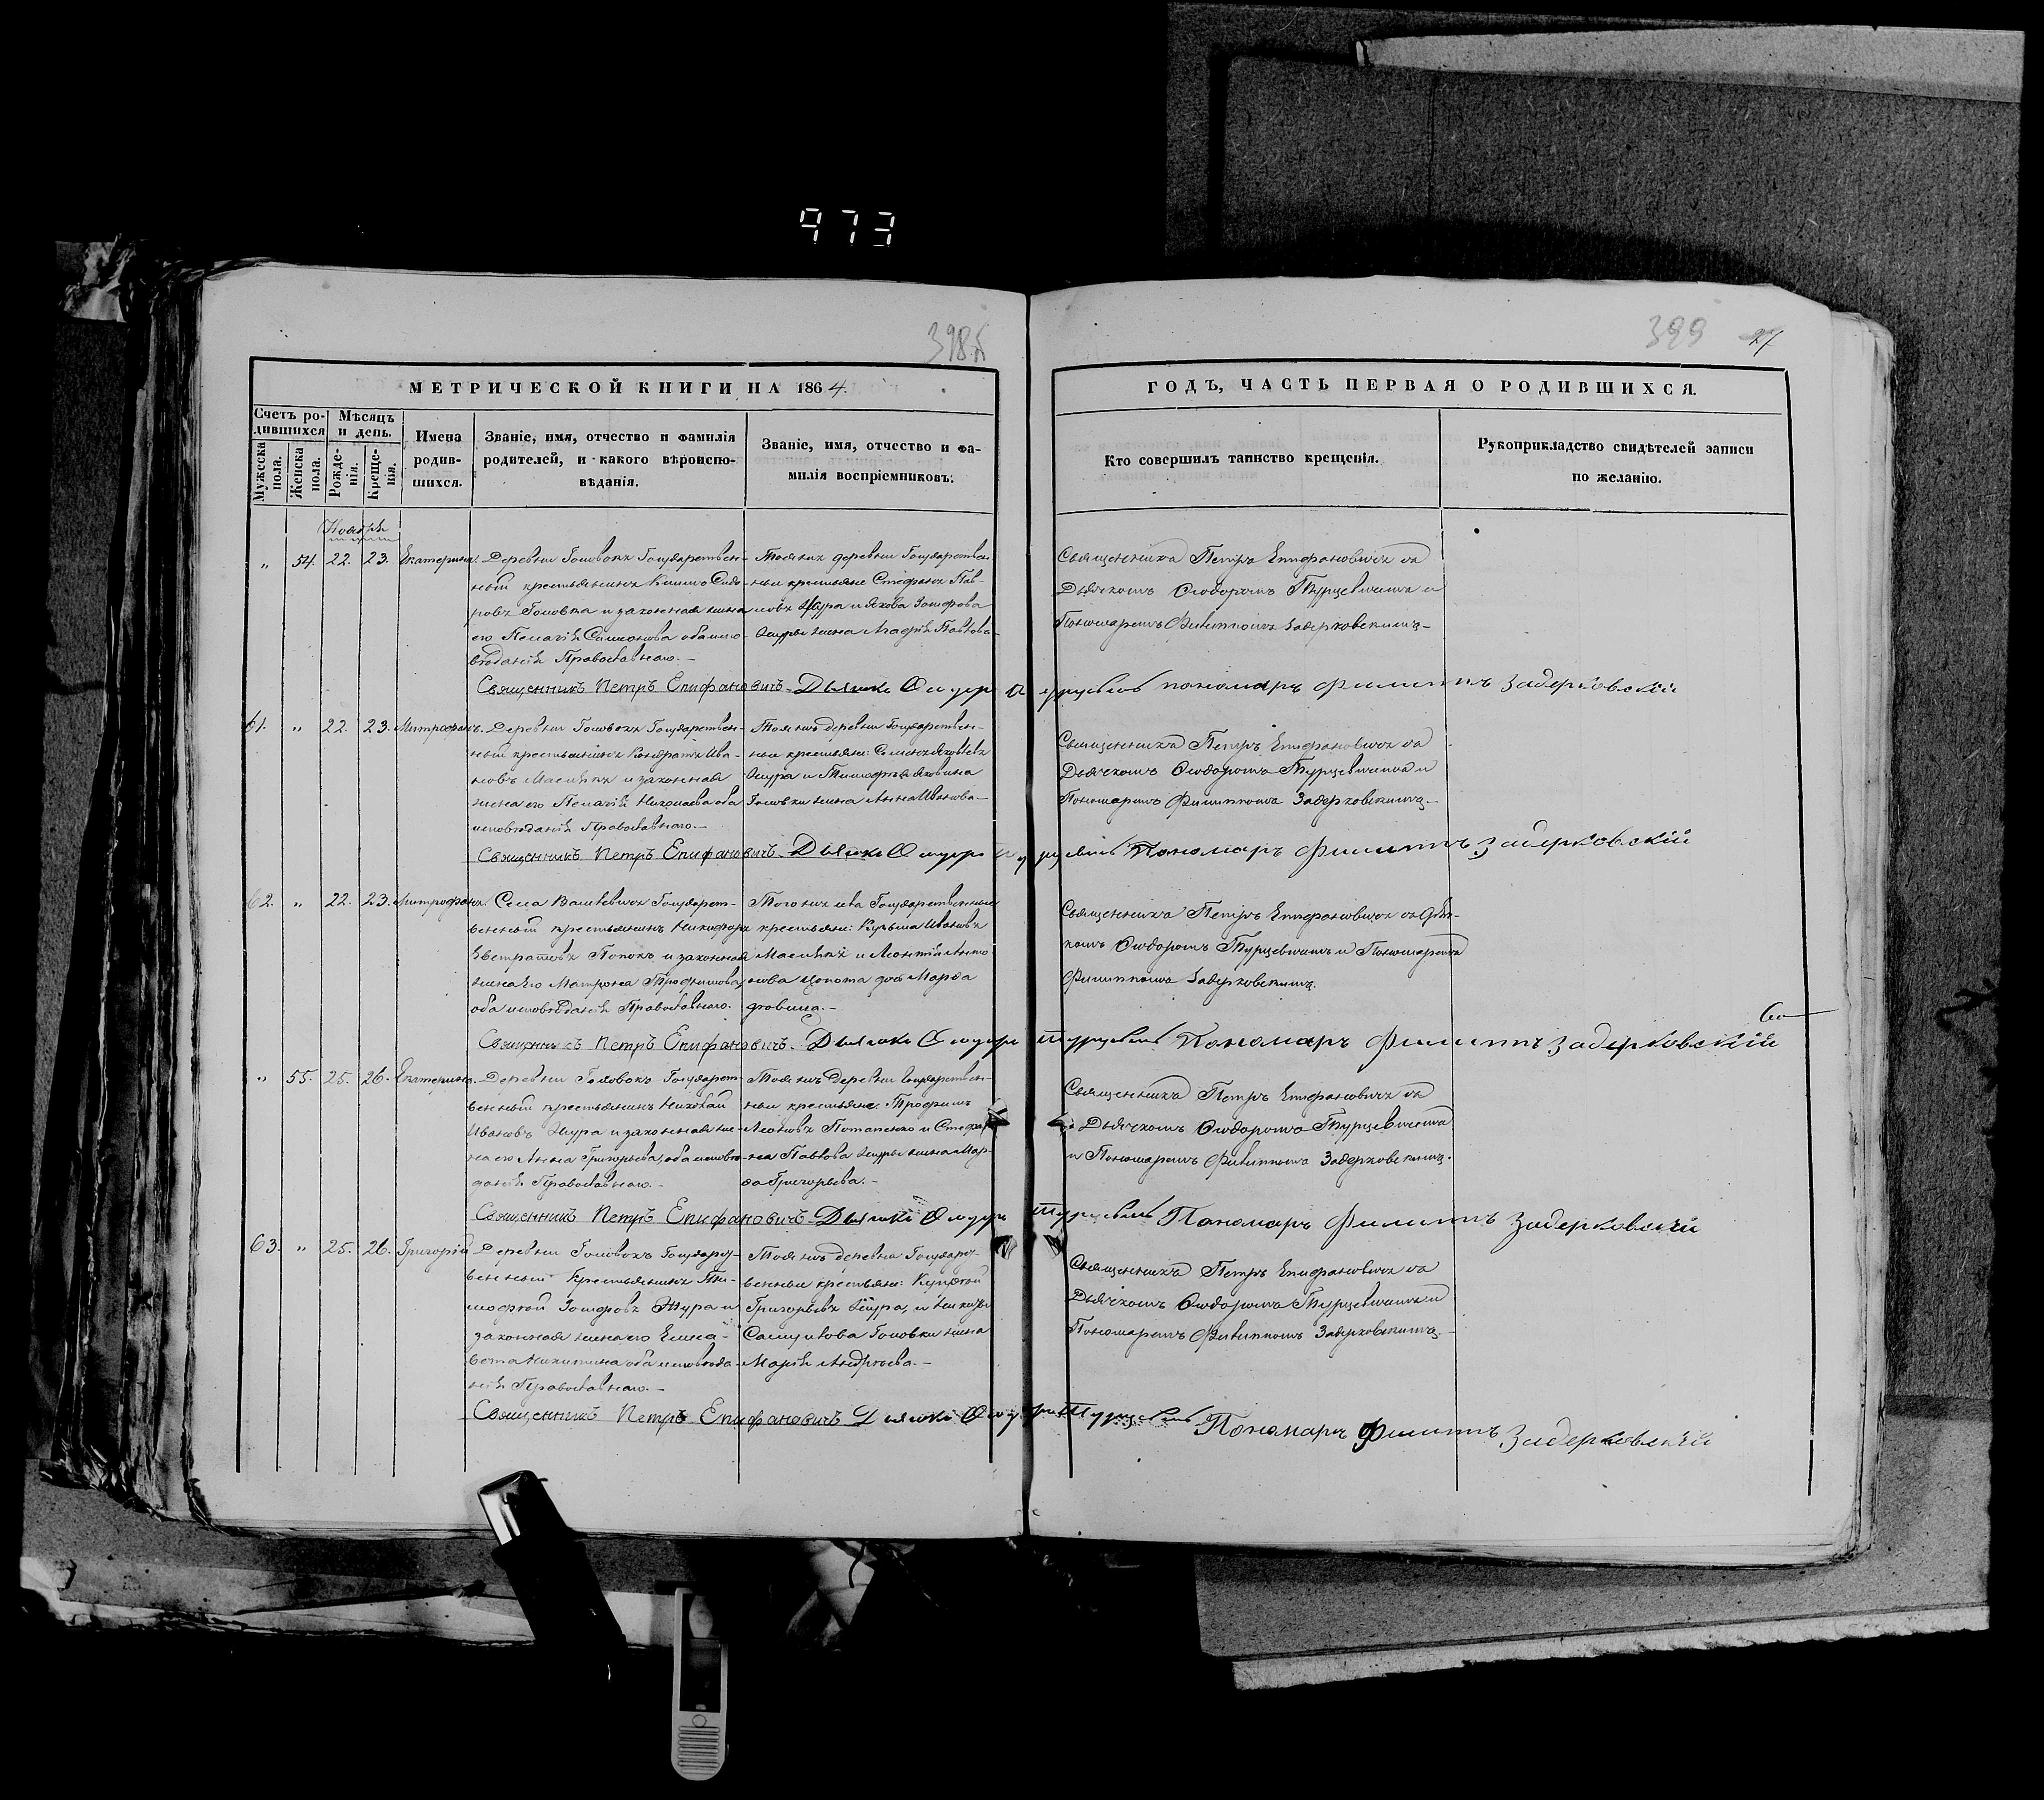 973
398
399 27
МЕТРИЧЕСКОЙ КНИГИ НА 1864.
ГОДЪ, ЧАСТЬ ПЕРВАЯ О РОДИВШИХСЯ.
Счетъ ро-
дившихся
Мужеска
пола.
Женска
пола.
Мѣсяцъ
и день.
Рожде-
нія.
Креще-
нія.
Имена
родив-
шихся.
Званіе, имя, отчество и фамилія
родителей, и какого вѣроиспо-
вѣданія.
Званіе, имя, отчество и фа-
милія воспріемниковъ.
Кто совершилъ таинство крещенія.
Рукоприкладство свидѣтелей записи
по желанію.
Ноября
" 54. 22. 23. Екатерина.
Деревни Головокъ Государствен-
ный крестьянинъ
Головка и законная жена
его Пелагія Симонова оба испо-
вѣданія Православнаго.
Тоя жъ деревни Государствен-
ные крестьяне Стефанъ Пав-
ловъ Жура и Якова
Журы жена Павлова
Священникъ Петръ Епифановичъ съ
Дьячкомъ Ѳеодоромъ Турцевичемъ и
Пономаремъ Филиппомъ Задерковскимъ
Священникъ Петръ Епифановичъ Дьячекъ Ѳеодоръ Турцевичъ пономаръ Филиппъ Задерковскій
61. " 22. 23. Митрофанъ.
Деревни Головокъ Государствен-
ный крестьянинъ Кондратъ Ива-
новъ и законная
жена его Пелагія Николаева оба
исповѣданія Православнаго.
Тоя жъ деревни Государствен-
ные крестьяне: Симонъ Яковлевъ
Жура и Тимофея Яковлева
Головки жена Анна Иванова
Священникъ Петръ Епифановичъ съ
Дьячкомъ Ѳеодоромъ Турцевичемъ и
Пономаремъ Филиппомъ Задерковскимъ
Священникъ Петръ Епифановичъ Дьячекъ Ѳеодоръ Турцевичъ Пономаръ Филиппъ Задерковскій
62. " 22. 23. Митрофанъ.
Села Государст-
венный крестьянинъ Никифоръ
Евстратовъ Попокъ и законная
жена его Матрона Трофимова
оба исповѣданія Православнаго.
Того жъ села Государственные
крестьяне: Кузьма Ивановъ
и Леонтія
дочь Марѳа
Священникъ Петръ Епифановичъ съ Дьяч-
комъ Ѳеодоромъ Турцевичемъ и Пономаремъ
Филиппомъ Задерковскимъ.
Священникъ Петръ Епифановичъ Дьячекъ Ѳеодоръ Турцевичъ Пономаръ Филиппъ Задерковскій
" 55. 25. 26. Екатерина.
Деревни Головокъ Государст-
венный крестьянинъ Николай
Ивановъ Жура и законная же-
на его Анна Григорьева, оба исповѣ-
данія Православнаго.
Тоя жъ деревни Государствен-
ные крестьяне: Трофимъ
Леоновъ Потапенко и Стефа-
на Павлова Журы жена Мар-
ѳа Григорьева.
Священникъ Петръ Епифановичъ съ
Дьячкомъ Ѳеодоромъ Турцевичемъ
и Пономаремъ Филиппомъ Задерковскимъ.
Священникъ Петръ Епифановичъ Дьячекъ Ѳеодоръ Турцевичъ Пономаръ Филиппъ Задерковскій
63. " 25. 26. Григорій
Деревни Головокъ Государст-
венный Крестьянинъ Ти-
мофей Жура и
законная жена его Елиса-
вета Никитина оба исповѣда-
нія Православнаго.
Тоя жъ деревни Государст-
венные крестьяне:
Григорьевъ Жура, и
Самуилова Головки жена
Марія Андреева.
Священникъ Петръ Епифановичъ съ
Дьячкомъ Ѳеодоромъ Турцевичемъ и
Пономаремъ Филиппомъ Задерковскимъ
Священникъ Петръ Епифановичъ Дьячекъ Ѳеодоръ Турцевичъ Пономаръ Филиппъ Задерковскій